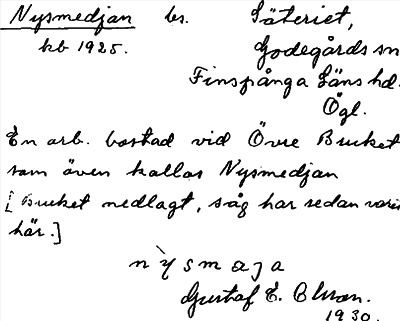 Nysmedjan bs. Säteriet,
kb 1925. Godegårds sn
Finspånga Läns hd.
Ögl.
En arb. bostad vid Övre Bruket
som även kallas Nysmedjan
[Bruket nedlagt, såg har sedan varit
här.]
nỳsmaja
Gustaf E. Olsson.
1930.